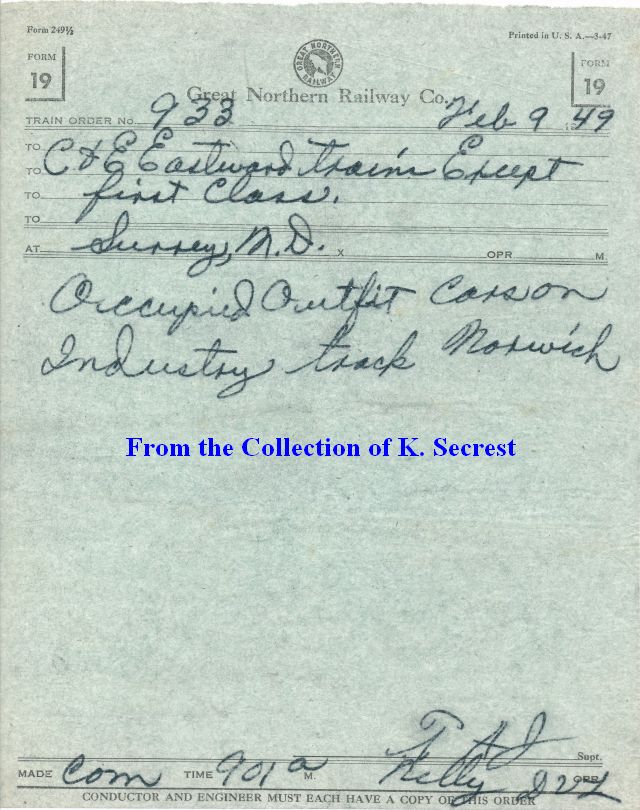 Form 249½
Printed in U. S. A.—3-47
FORM
19
GREAT NORTHERN RAILWAY
FORM
19
Great Northern Railway Co.
TRAIN ORDER No. 933 Feb 9 1949
TO C & E Eastward trains Except
TO first Class.
TO
TO
AT Surrey, N.D. X OPR. M.
Occupied Outfit Cars on
Industry track Norwich
From the Collection of K. Secrest
T A J Supt.
MADE Com TIME 901 a M. Kelly OPR.
CONDUCTOR AND ENGINEER MUST EACH HAVE A COPY OF THIS ORDER